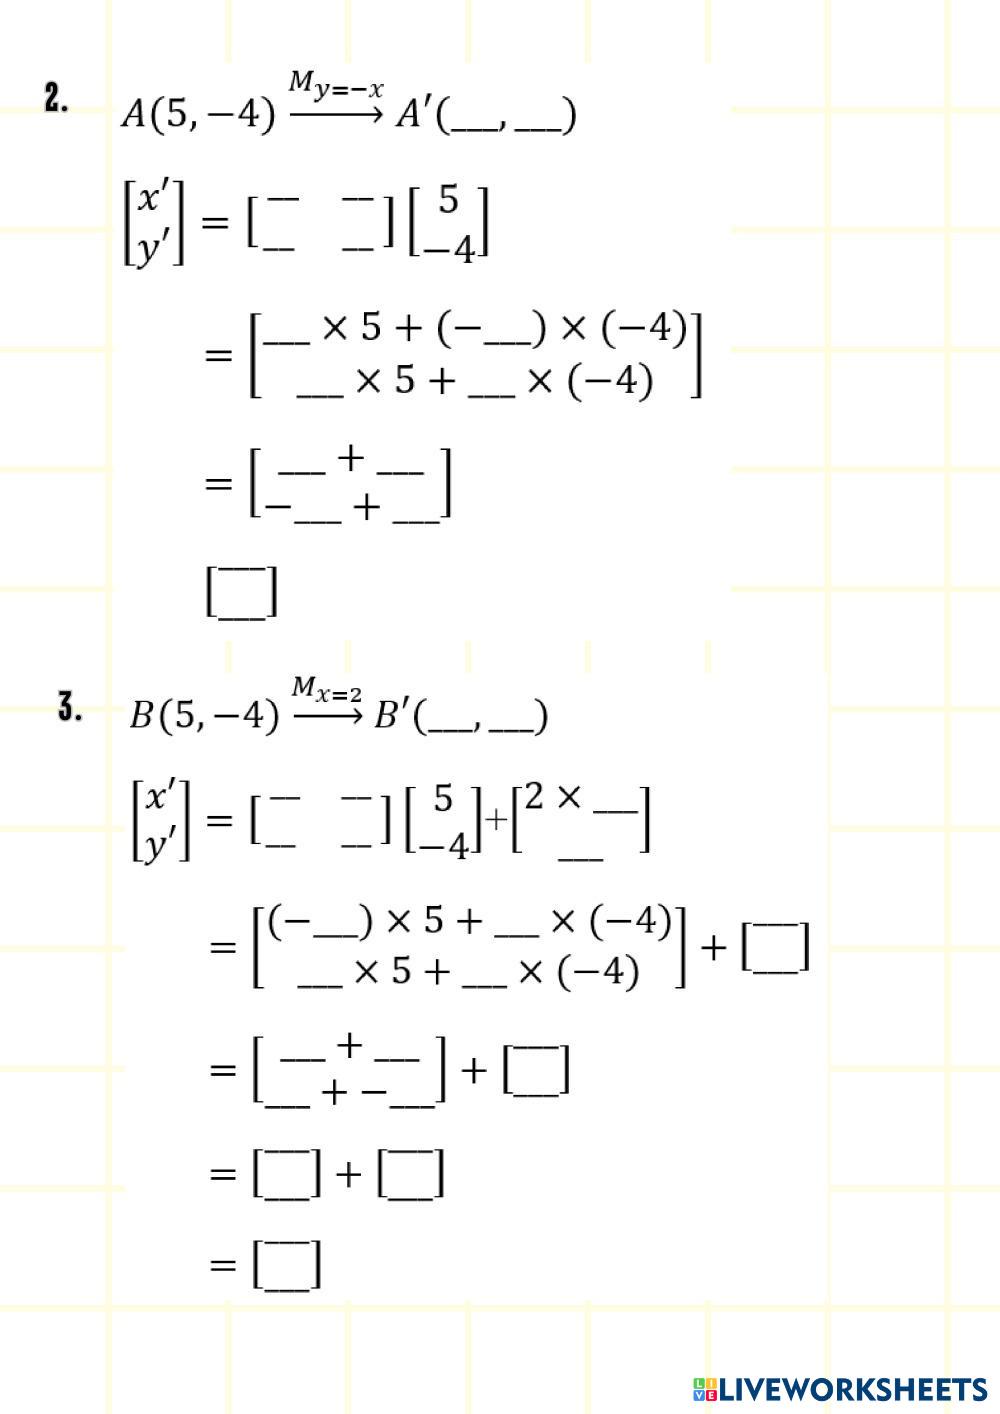 2.
A(5, −4) M_{y=−x} → A′(___, ___)
[x′ y′] = [__ __ __ __] [5 −4]
= [___ × 5 + (−___) × (−4)
___ × 5 + ___ × (−4)]
= [___ + ___
−___ + ___]
[___ ___]
3.
B(5, −4) M_{x=2} → B′(___, ___)
[x′ y′] = [__ __ __ __] [5 −4] + [2 × ___ ___]
= [(−___) × 5 + ___ × (−4)
___ × 5 + ___ × (−4)] + [___ ___]
= [___ + ___
___ + −___] + [___ ___]
= [___ ___] + [___ ___]
= [___ ___]
LIVE LIVEWORKSHEETS